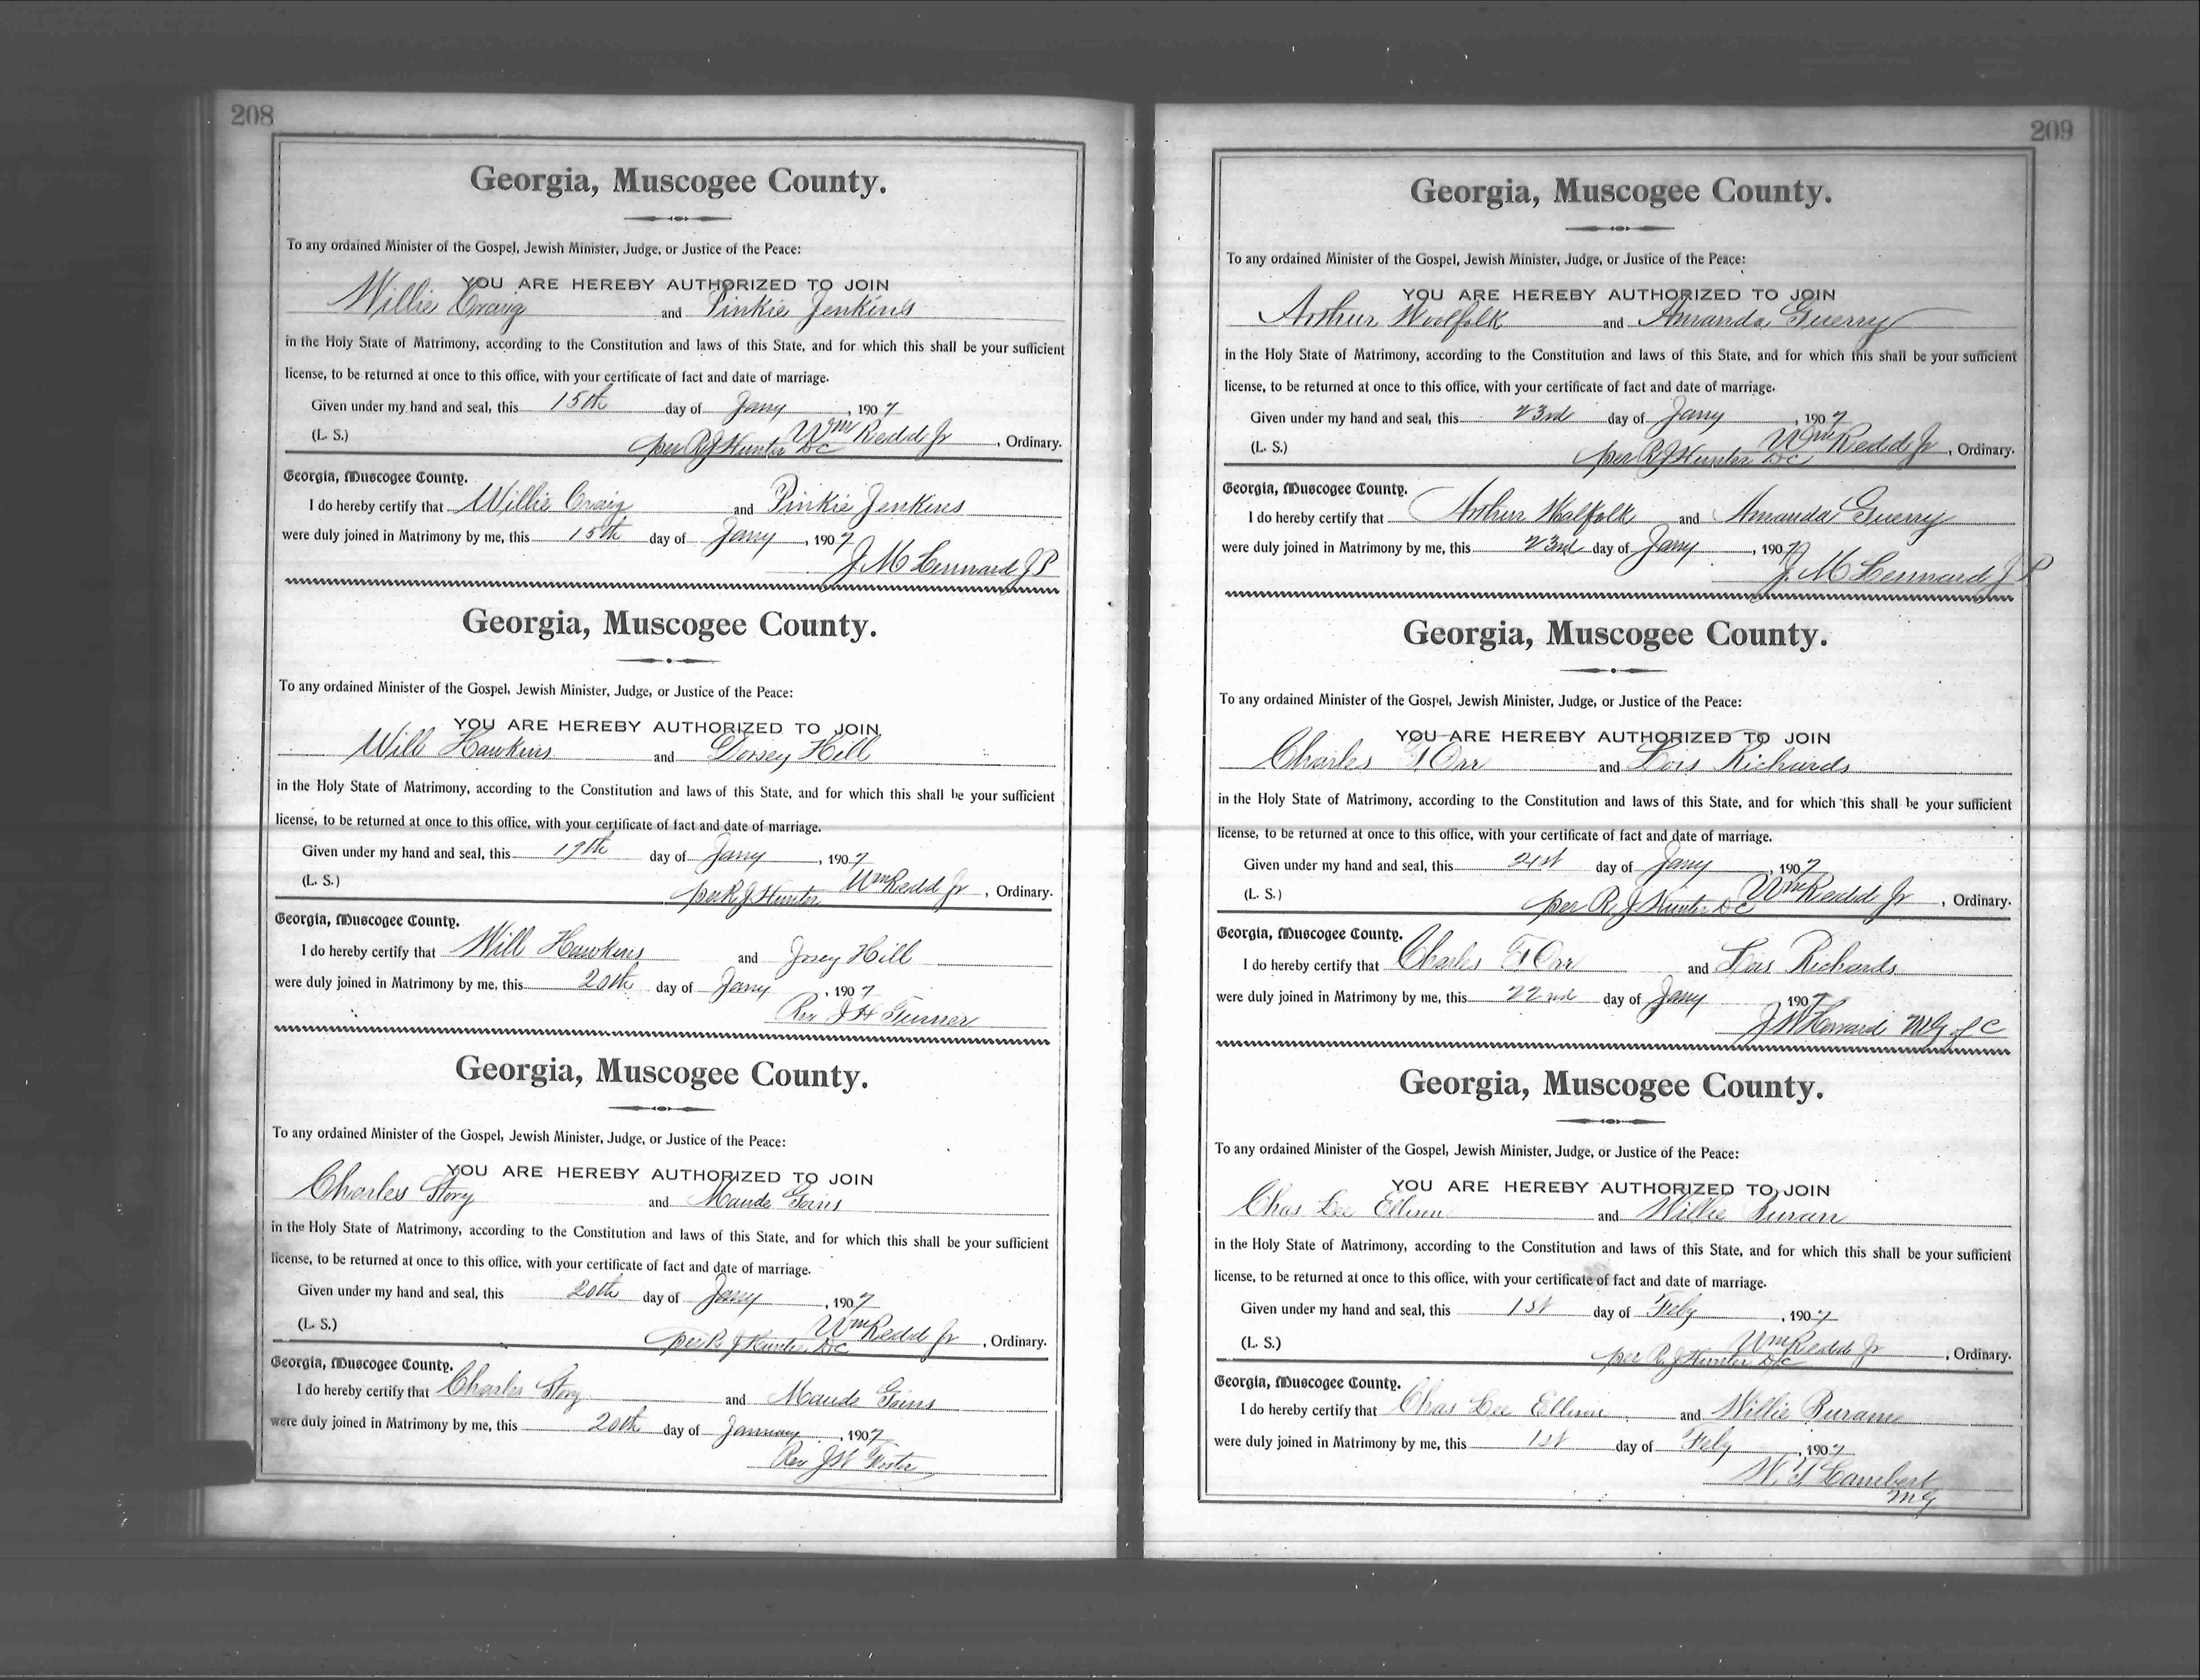 208
Georgia, Muscogee County.
To any ordained Minister of the Gospel, Jewish Minister, Judge, or Justice of the Peace:
YOU ARE HEREBY AUTHORIZED TO JOIN
Willie Craig and Pinkie Jenkins
in the Holy State of Matrimony, according to the Constitution and laws of this State, and for which this shall be your sufficient
license, to be returned at once to this office, with your certificate of fact and date of marriage.
Given under my hand and seal, this 15th day of Jany, 1907
(L. S.) per R J Hunter DC Wm Redd Jr, Ordinary.
Georgia, Muscogee County.
I do hereby certify that Willie Craig and Pinkie Jenkins
were duly joined in Matrimony by me, this 15th day of Jany, 1907
J M Lennard J P
Georgia, Muscogee County.
To any ordained Minister of the Gospel, Jewish Minister, Judge, or Justice of the Peace:
YOU ARE HEREBY AUTHORIZED TO JOIN
Will Hawkins and Dorsey Hill
in the Holy State of Matrimony, according to the Constitution and laws of this State, and for which this shall be your sufficient
license, to be returned at once to this office, with your certificate of fact and date of marriage.
Given under my hand and seal, this 19th day of Jany, 1907
(L. S.) per R J Hunter Wm Redd Jr, Ordinary.
Georgia, Muscogee County.
I do hereby certify that Will Hawkins and Josey Hill
were duly joined in Matrimony by me, this 20th day of Jany, 1907
Rev J H Turner
Georgia, Muscogee County.
To any ordained Minister of the Gospel, Jewish Minister, Judge, or Justice of the Peace:
YOU ARE HEREBY AUTHORIZED TO JOIN
Charles Story and Maude Goins
in the Holy State of Matrimony, according to the Constitution and laws of this State, and for which this shall be your sufficient
license, to be returned at once to this office, with your certificate of fact and date of marriage.
Given under my hand and seal, this 20th day of Jany, 1907
(L. S.) per R J Hunter DC Wm Redd Jr, Ordinary.
Georgia, Muscogee County.
I do hereby certify that Charles Story and Maude Goins
were duly joined in Matrimony by me, this 20th day of January, 1907
Rev J W Foster
209
Georgia, Muscogee County.
To any ordained Minister of the Gospel, Jewish Minister, Judge, or Justice of the Peace:
YOU ARE HEREBY AUTHORIZED TO JOIN
Arthur Woolfolk and Amanda Guerry
in the Holy State of Matrimony, according to the Constitution and laws of this State, and for which this shall be your sufficient
license, to be returned at once to this office, with your certificate of fact and date of marriage.
Given under my hand and seal, this 23rd day of Jany, 1907
(L. S.) per R J Hunter DC Wm Redd Jr, Ordinary.
Georgia, Muscogee County.
I do hereby certify that Arthur Walfolk and Amanda Guerry
were duly joined in Matrimony by me, this 23rd day of Jany, 1907
J. M Lennard J P
Georgia, Muscogee County.
To any ordained Minister of the Gospel, Jewish Minister, Judge, or Justice of the Peace:
YOU ARE HEREBY AUTHORIZED TO JOIN
Charles F Orr and Lois Richards
in the Holy State of Matrimony, according to the Constitution and laws of this State, and for which this shall be your sufficient
license, to be returned at once to this office, with your certificate of fact and date of marriage.
Given under my hand and seal, this 21st day of Jany, 1907
(L. S.) per R J Hunter DC Wm Redd Jr, Ordinary.
Georgia, Muscogee County.
I do hereby certify that Charles F Orr and Lois Richards
were duly joined in Matrimony by me, this 22nd day of Jany 1907
J W Howard MG of C
Georgia, Muscogee County.
To any ordained Minister of the Gospel, Jewish Minister, Judge, or Justice of the Peace:
YOU ARE HEREBY AUTHORIZED TO JOIN
Chas Lee Ellison and Willie Buran
in the Holy State of Matrimony, according to the Constitution and laws of this State, and for which this shall be your sufficient
license, to be returned at once to this office, with your certificate of fact and date of marriage.
Given under my hand and seal, this 1st day of Feby, 1907
(L. S.) per R J Hunter D/C Wm Redd Jr, Ordinary.
Georgia, Muscogee County.
I do hereby certify that Chas Lee Ellison and Willie Buram
were duly joined in Matrimony by me, this 1st day of Feby, 1907
W. T Lambert
MG